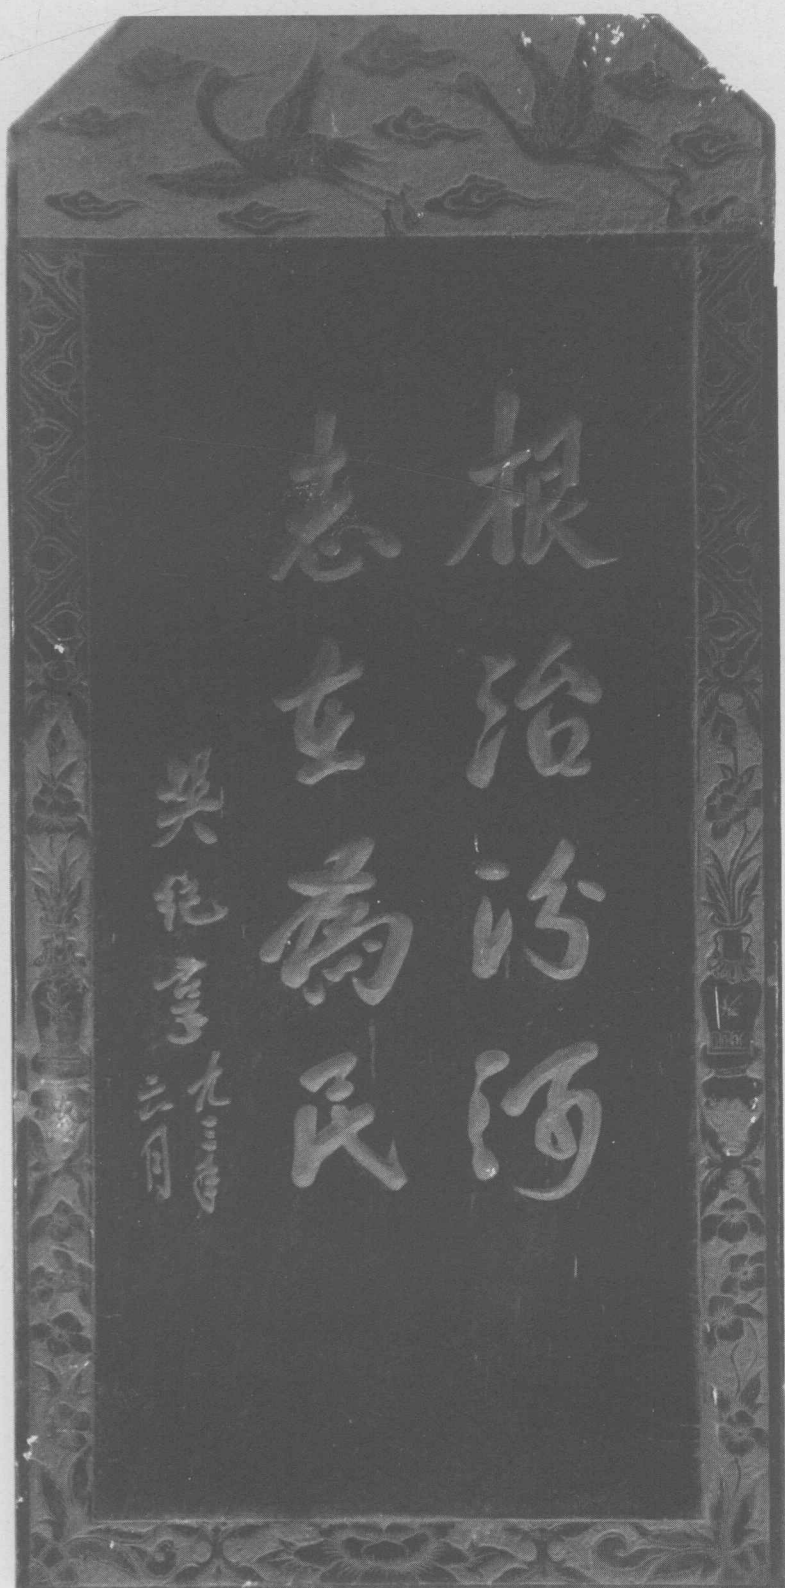 根治汾河
志在為民
吳
九三年
六月